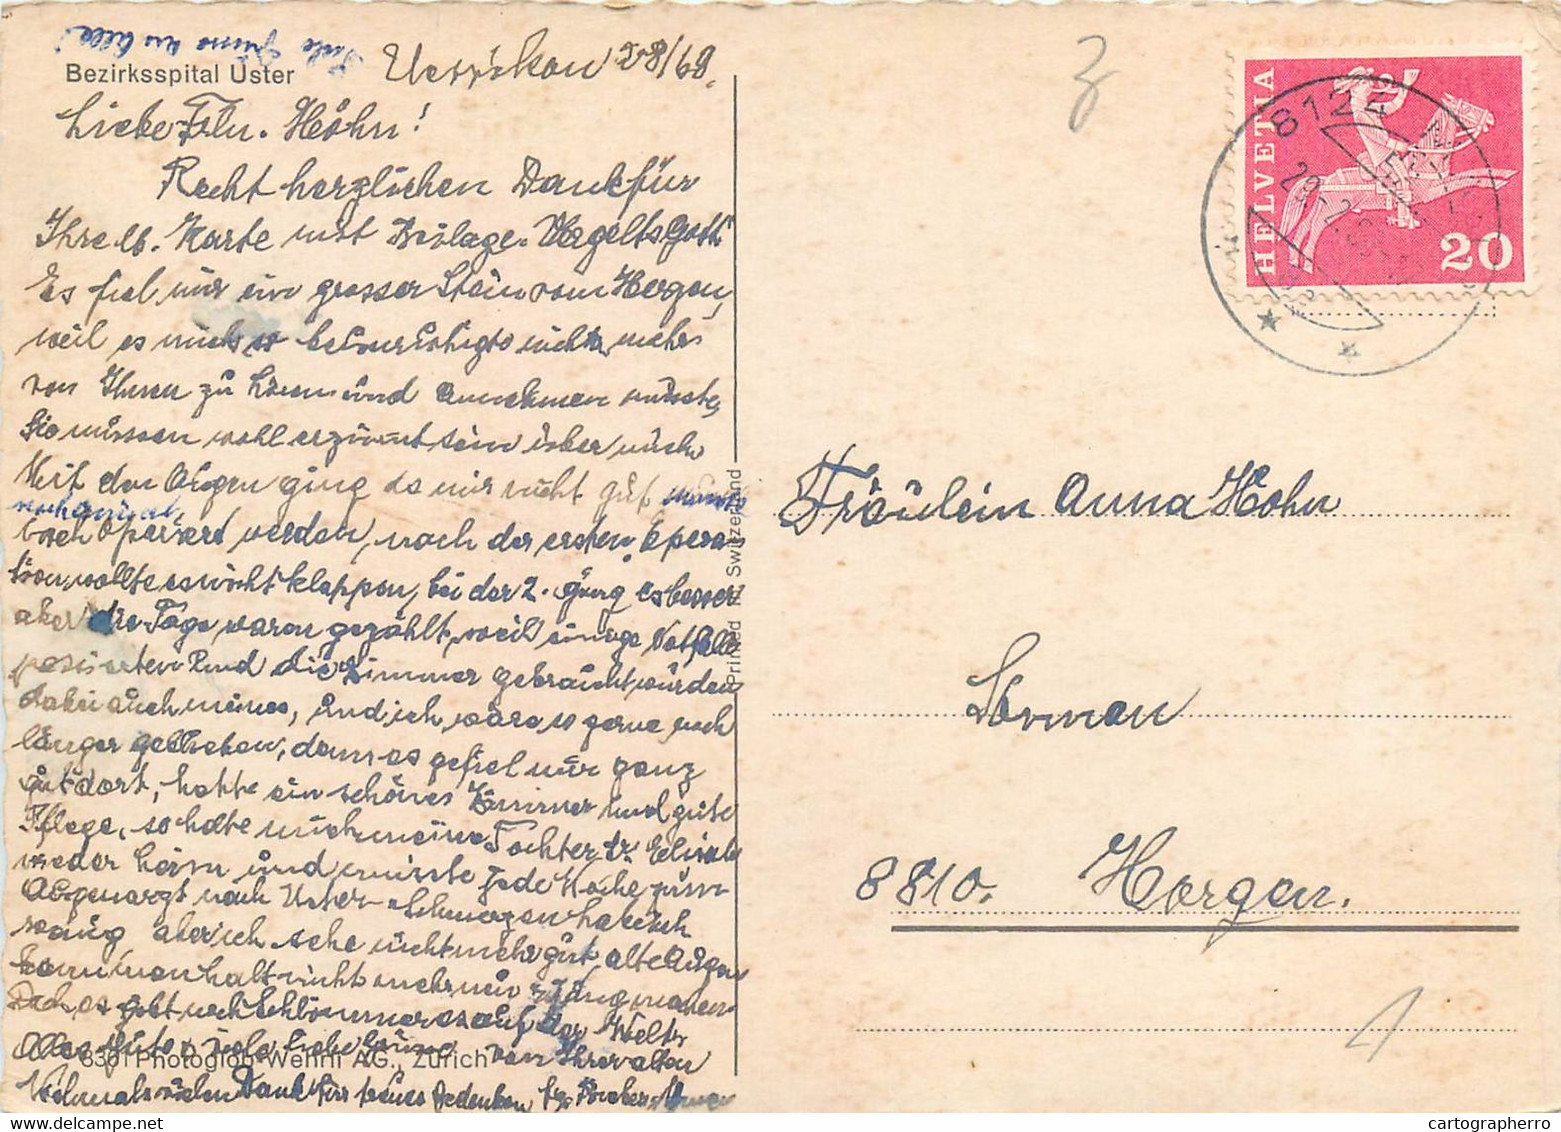 Viele Grüsse an alle!
Bezirksspital Uster
Uerikon 28/2 68.
Liebe Frln. Höhn!
Recht herzlichen Dank für
Ihre lb. Karte mit Beilage. Vergelts Gott
Es fiel mir ein grosser Stein vom Herzen,
weil es mich so beunruhigte nichts mehr
von Ihnen zu hören und annehmen müsste,
Sie müssen wohl erzürnt sein über mich
Mit den Augen ging es mir nicht gut, musste
noch operiert werden, nach der ersten Opera-
tion wollte es nicht klappen, bei der 2. ging es besser
aber die Tage waren gezählt, weil einige Notfälle
passierten und die Zimmer gebraucht würden
dabei auch meines, und ich wäre so gerne noch
länger geblieben, denn es gefiel mir ganz
gut dort, hatte ein schönes Zimmer und gute
Pflege, so holte mich meine Tochter
wieder heim und musste jede Woche zum
Augenarzt nach Uster. Schmerzen habe ich
wenig aber ich sehe nicht mehr gut alte Augen
kann man halt nicht mehr jung machen.
Doch es gibt noch Schlimmeres auf der Welt.
Alles Gute u. viele liebe Grüsse von Ihrer alten
8301 Photoglob-Wehrli AG., Zürich
Vielmals vielen Dank für Gedenken
Printed in Switzerland
HELVETIA
20
8124
Fräulein Anna Höhn
8810. Horgen.